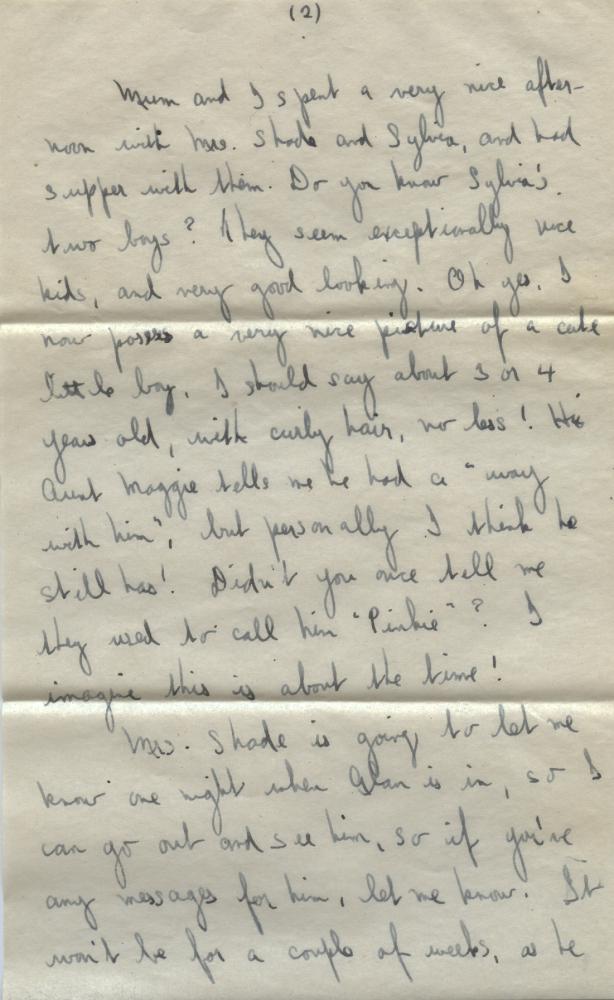 (2)
Mum and I spent a very nice after-
noon with Mrs. Shade and Sylvia, and had
supper with them. Do you know Sylvia's
two boys? They seem exceptionally nice
kids, and very good looking. Oh yes, I
now posess a very nice picture of a cute
little boy, I should say about 3 or 4
years old, with curly hair, no less! His
Aunt Maggie tells me he had a "way
with him", but personally I think he
still has! Didn't you once tell me
they used to call him "Pinkie"? I
imagine this is about the time!
Mrs. Shade is going to let me
know one night when Glan is in, so I
can go out and see him, so if you've
any messages for him, let me know. It
won't be for a couple of weeks, as he